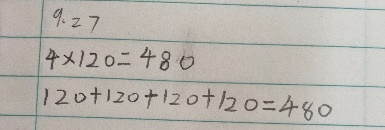 9. = 7
4×120=480
120+120+120+120=480